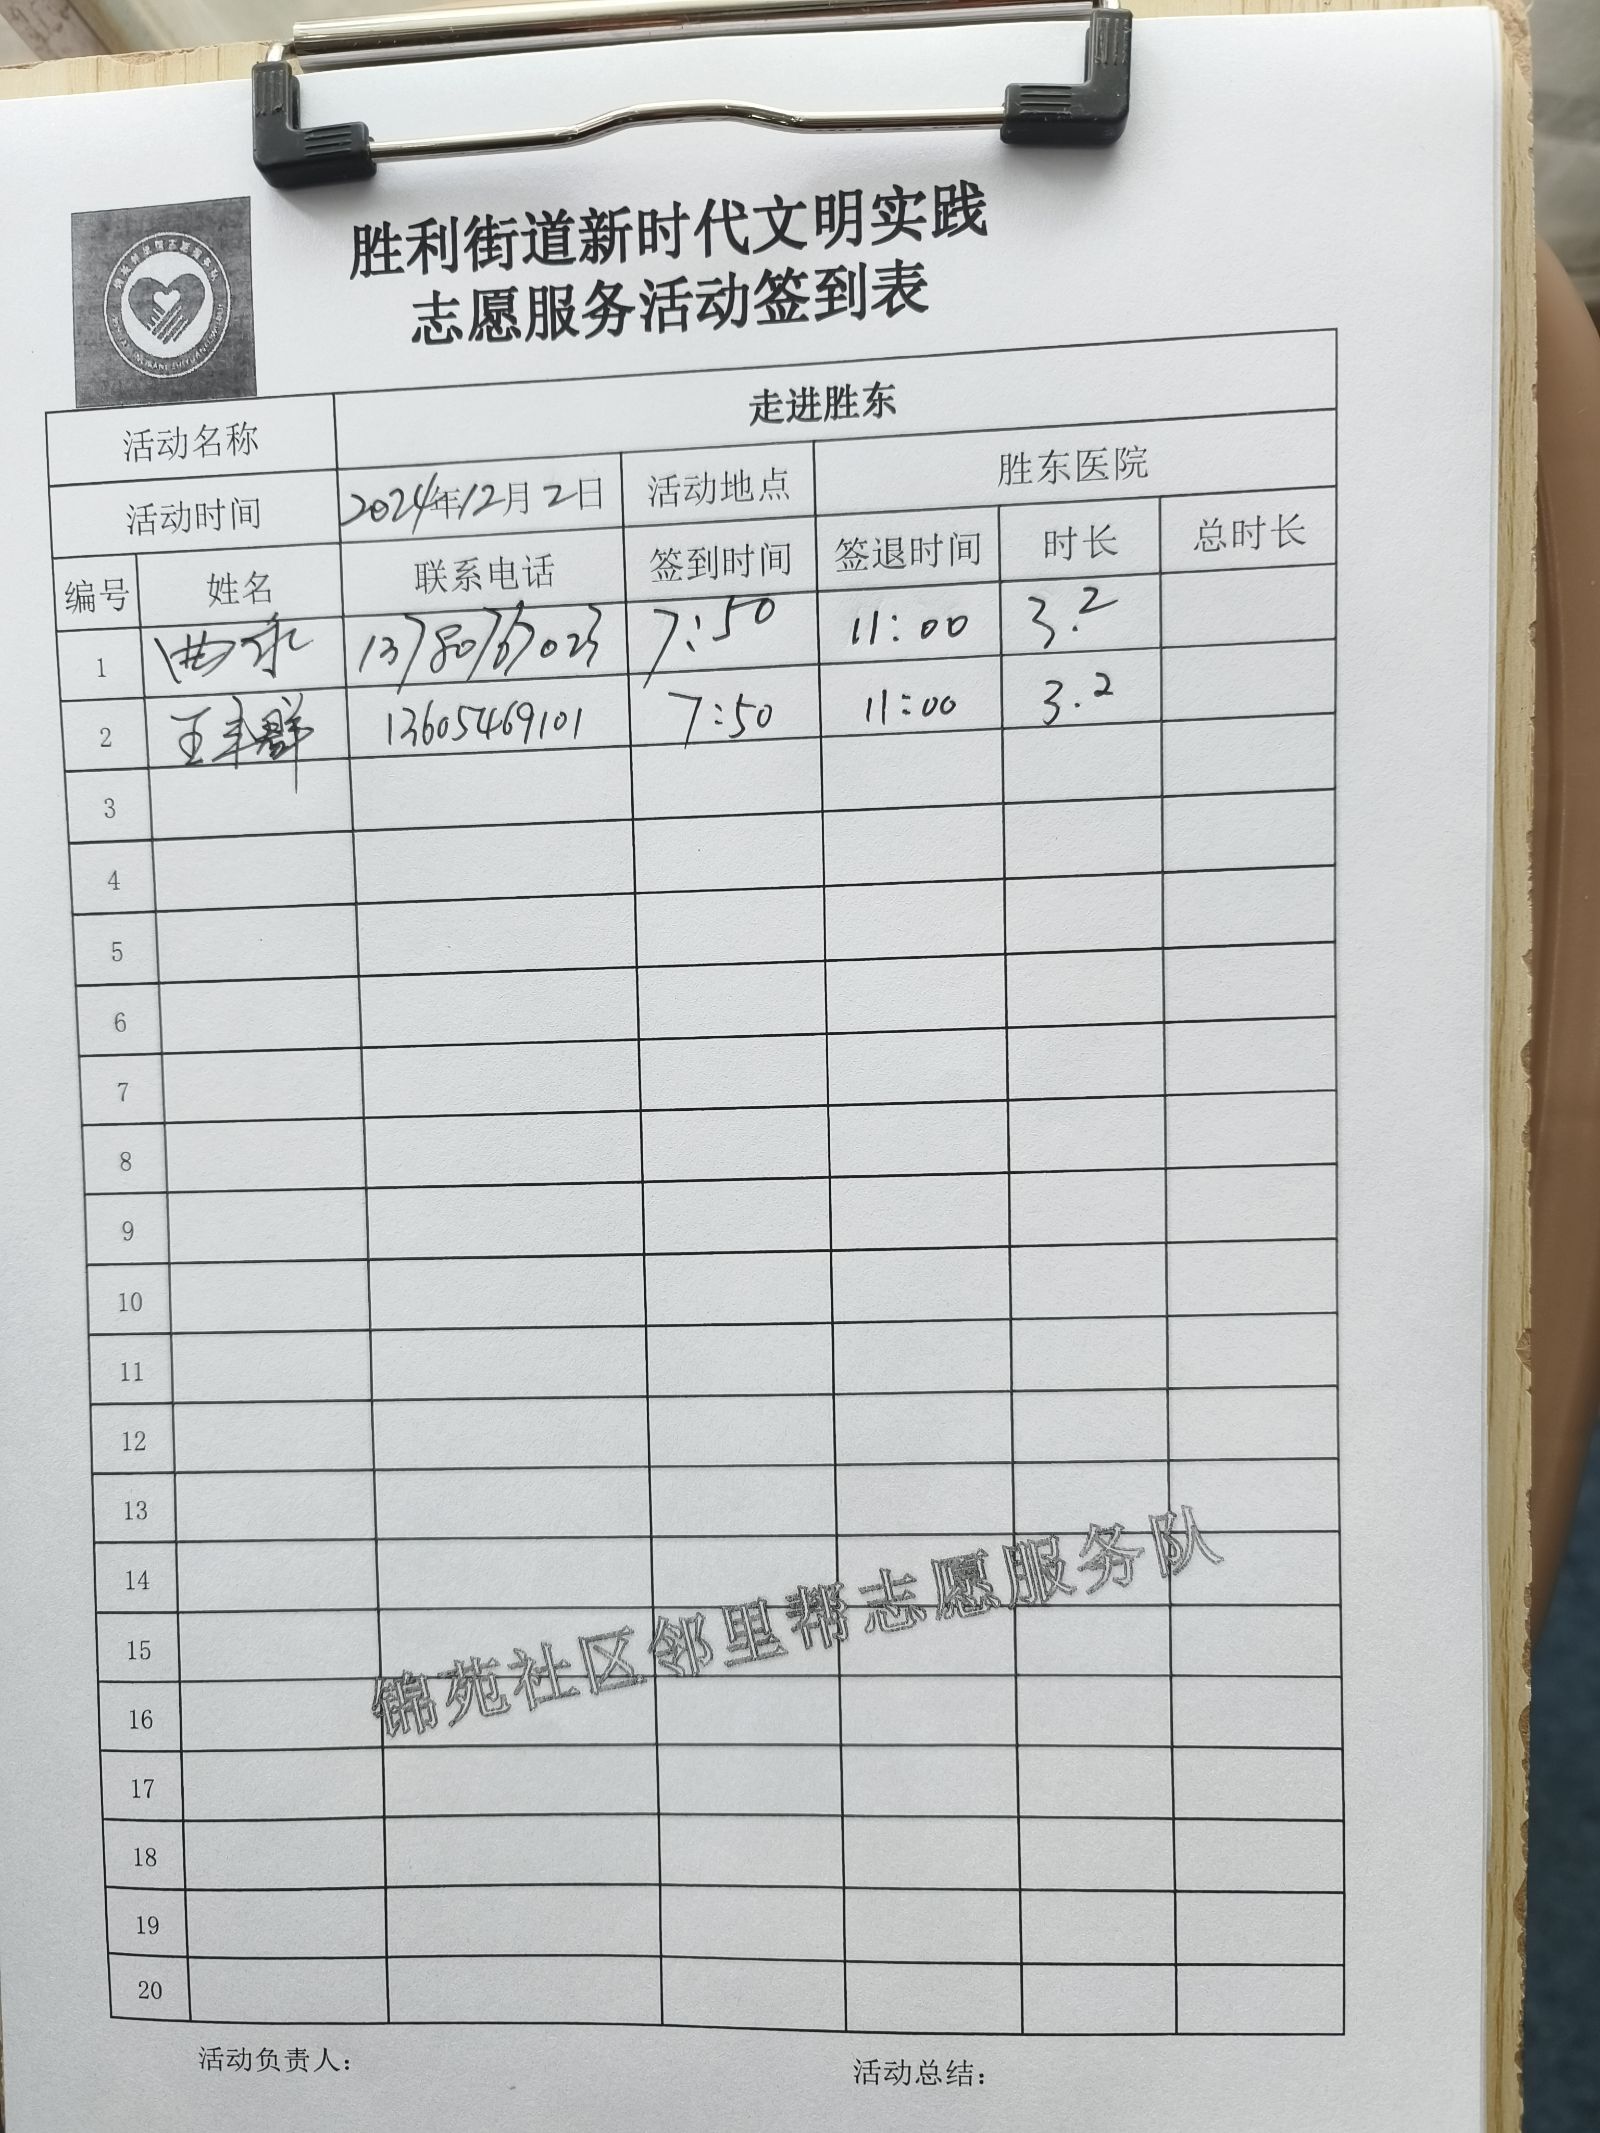 胜利街道新时代文明实践
志愿服务活动签到表
活动名称 走进胜东
活动时间 2024年12月2日 活动地点 胜东医院
编号 姓名 联系电话 签到时间 签退时间 时长 总时长
1 13780767023 7:50 11:00 3.2
2 王 群 13605469101 7:50 11:00 3.2
3
4
5
6
7
8
9
10
11
12
13
14
15
16
17
18
19
20
锦苑社区邻里帮志愿服务队
活动负责人： 活动总结：